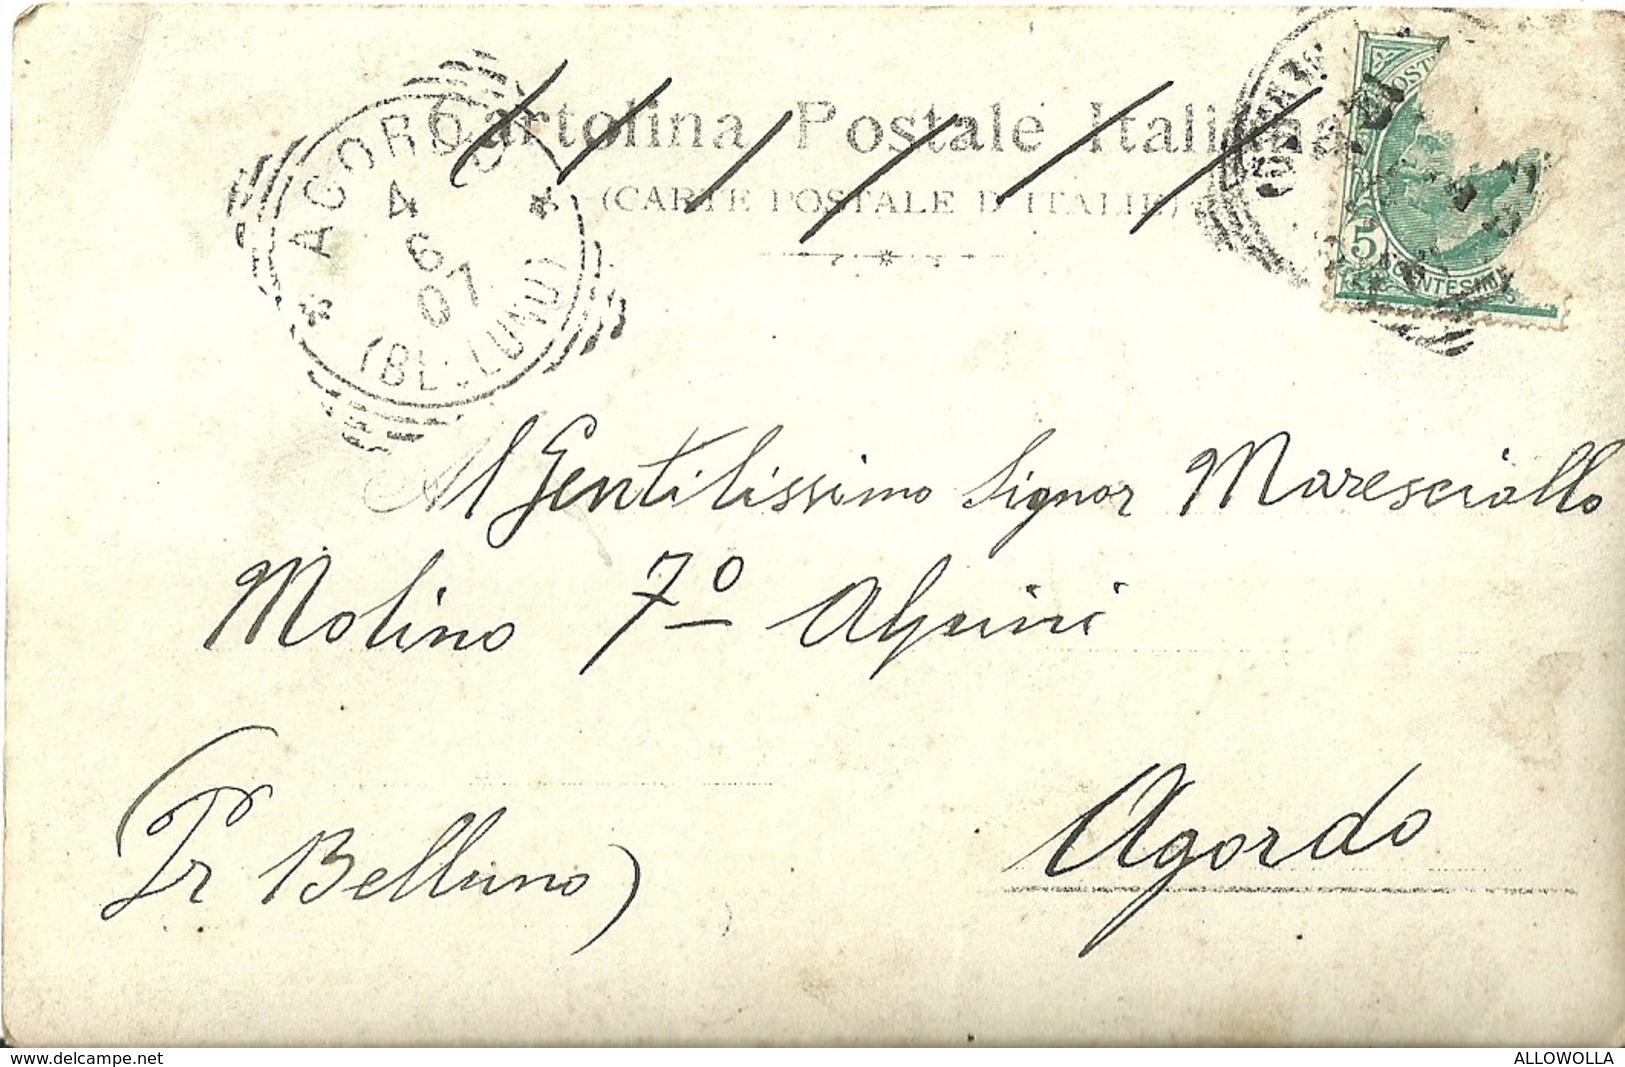 Cartolina Postale Italiana
(CARTE POSTALE D'ITALIE)
* AGORDO *
4
6
07
(BELLUNO)
POST
5
CENTESIMI
Al Gentilissimo Signor Maresciallo
Molino 7º Alpini
(Pr Belluno)
Agordo
www.delcampe.net
ALLOWOLLA